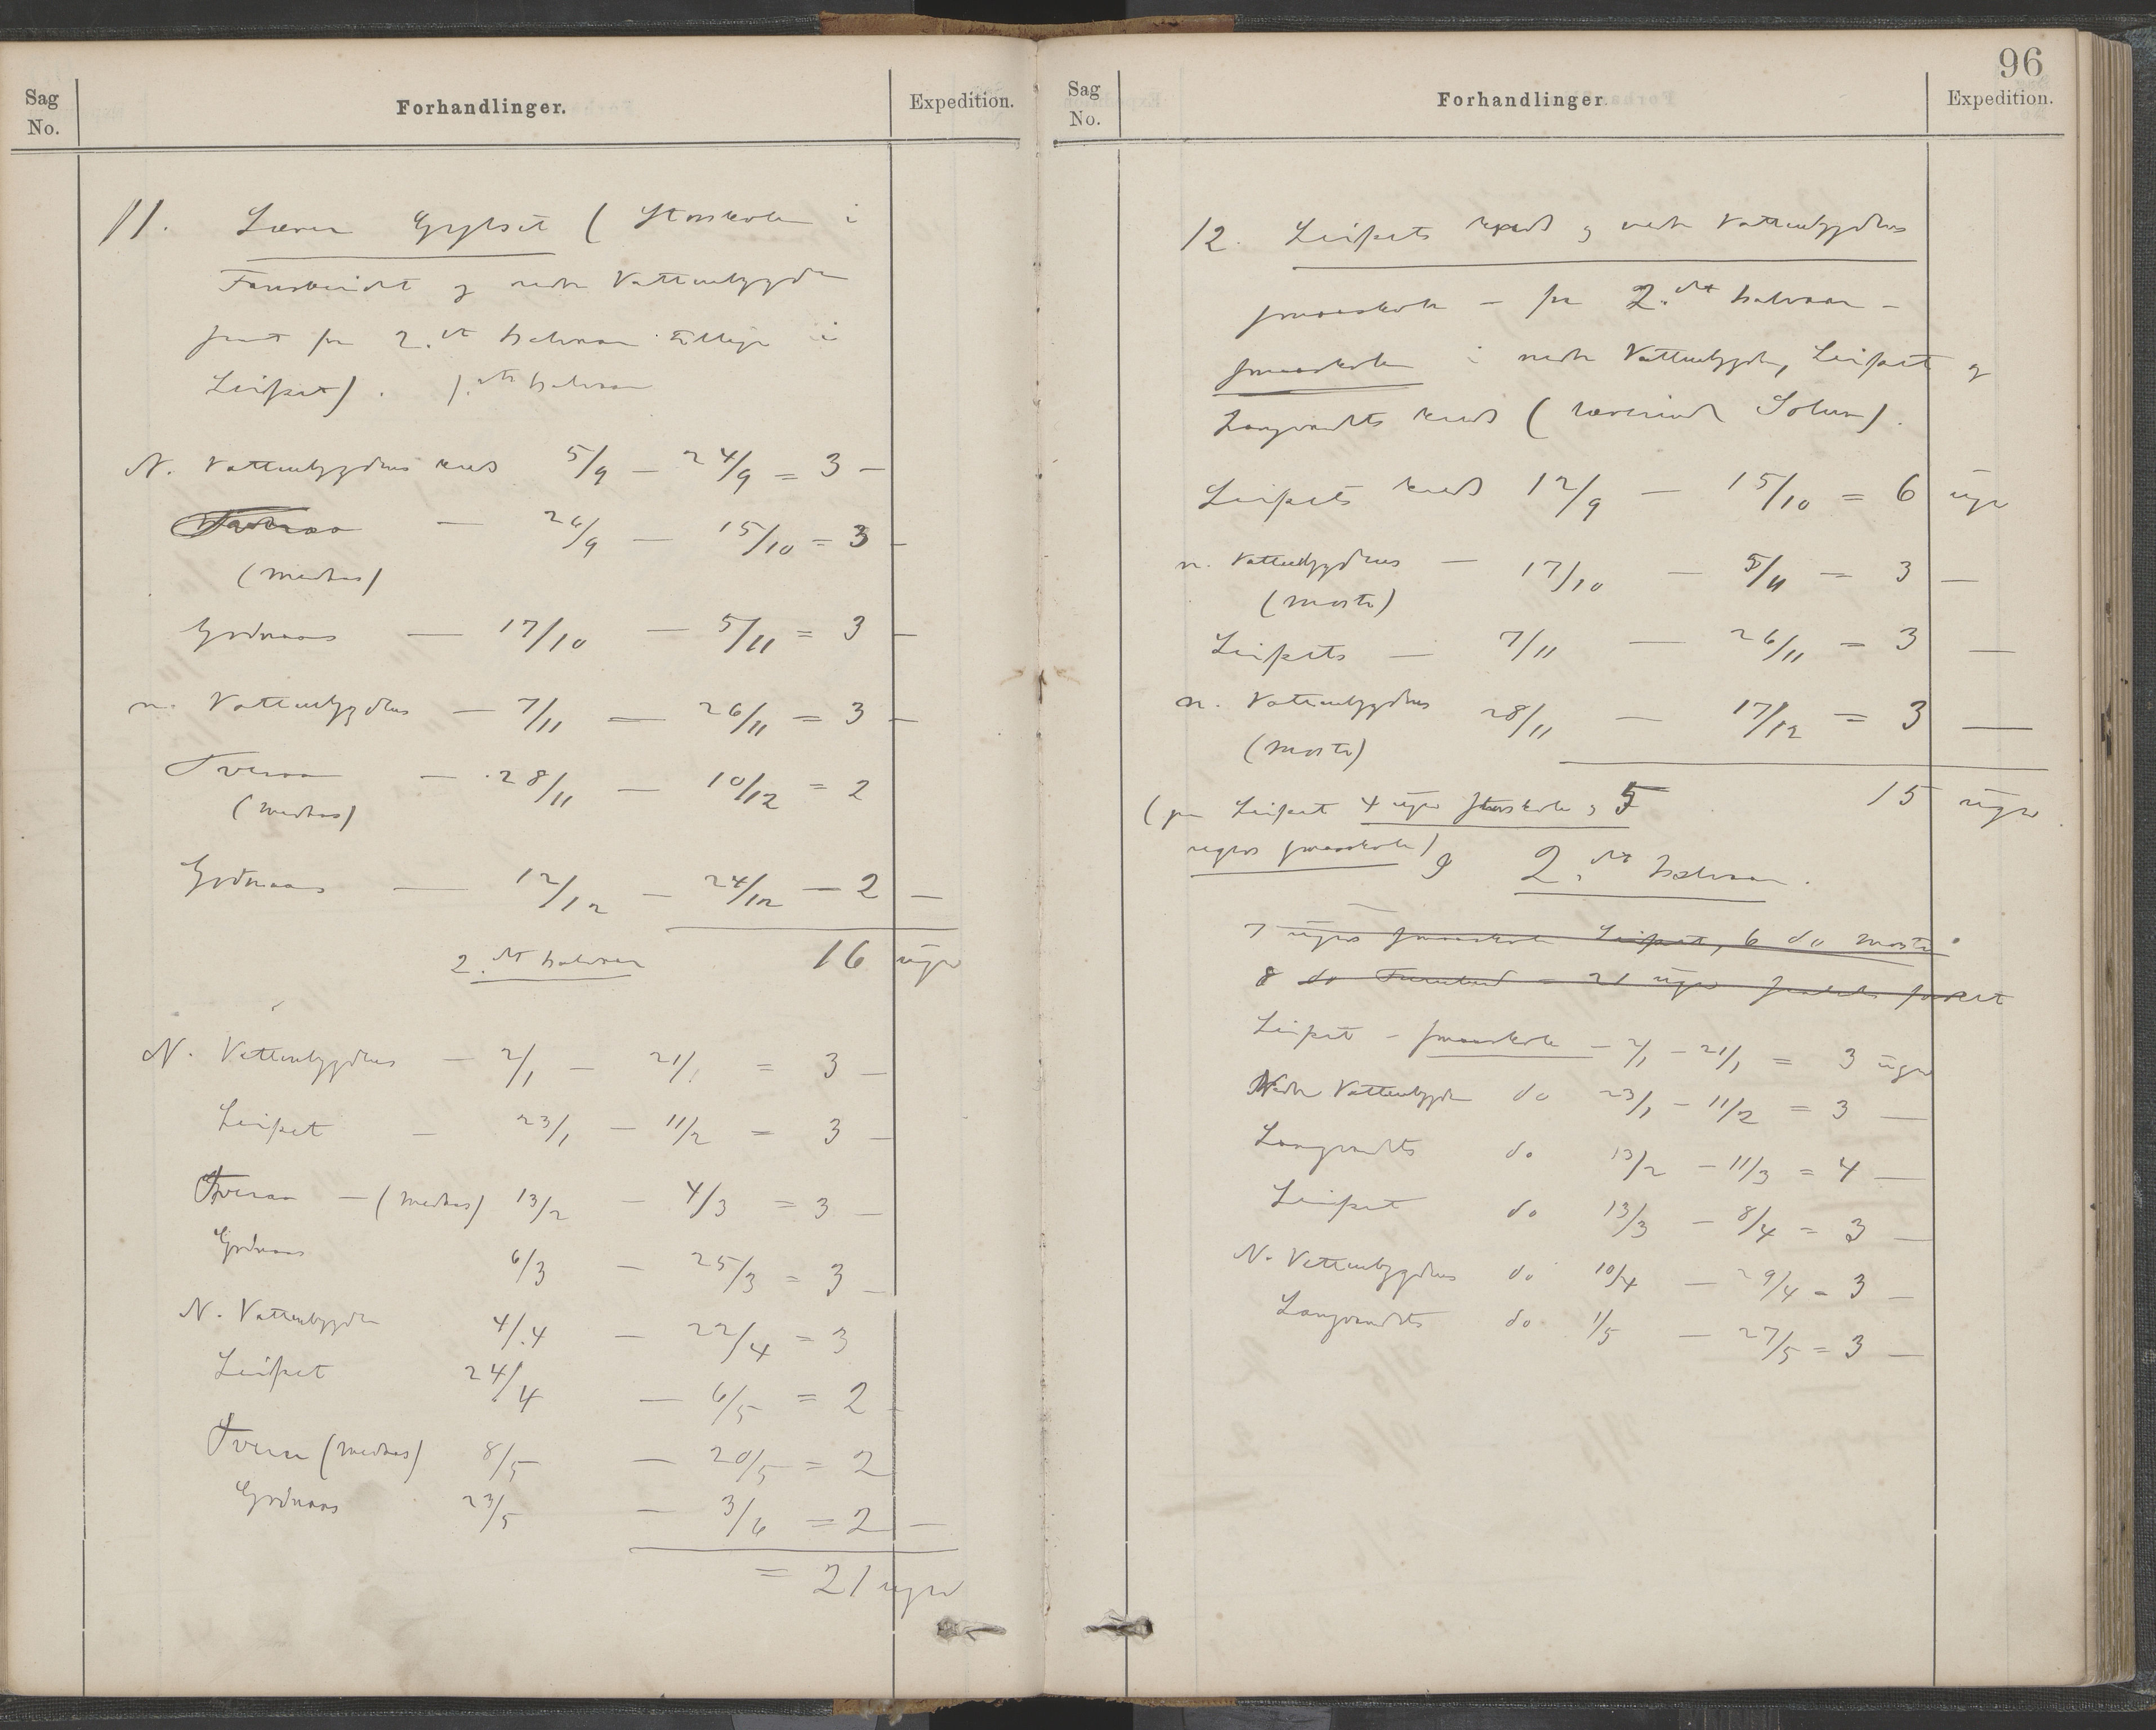 Sag
No.
Forhandlinger.
Expedition.
11. Lærer Gylset (Storskole i
og nedre Vattenbygden
samt for 2. det halvaar tillige i
Leifset). 1.ste halvaar
N. Vattenbygdens kreds 5/9 – 24/9 = 3 –
Tveraa – 26/9 – 15/10 = 3 –
(medaas)
Godnaas – 17/10 – 5/11 = 3 –
n. Vattenbygdens – 7/11 – 26/11 = 3 –
Tveraa – 28/11 – 10/12 = 2
(medaas)
Godnaas – 12/12 – 24/12 – 2 –
16 uger
2. det halvaar
N. Vattenbygdens – 2/1 – 21/1 = 3 –
Leifset – 23/1 – 11/2 = 3 –
Tveraa – (medaas) 13/2 – 4/3 = 3 –
Godnaas 6/3 – 25/3 = 3 –
N. Vattenbygden 4/4 – 22/4 = 3
Leifset 24/4 – 6/5 = 2 –
Tveraa (medaas) 8/5 – 20/5 = 2
Godnaas 23/5 – 3/6 = 2 –
= 21 uger
96
Sag
No.
Forhandlinger
Expedition.
12. Leifsets kreds og nedre Vattenbygdens
smaaskole – for 2. det halvaar –
smaaskolen i nedre Vattenbygden, Leifset og
Langvandets kreds (lærerinde Solum).
Leifsets kreds 12/9 – 15/10 = 6 uger
n. Vattenbygdens – 17/10 – 5/11 – 3 –
(moste)
Leifsets – 7/11 – 26/11 – 3 –
n. Vattenbygdens 28/11 – 17/12 = 3 –
(moste)
15 uger
(for Leifset 4 uger storskole og 5
ugers smaaskole)
2. det halvaar.
7 ugers smaaskole Leifset, 6 do moste
8 do – 21 uger
Leifset – smaaskole – 2/1 – 21/1 = 3 uger
Nedre Vattenbygden do 23/1 – 11/2 = 3 –
Langvandets do 13/2 – 11/3 = 4 –
Leifset do 13/3 – 8/4 = 3 –
N. Vattenbygdens do 10/4 – 29/4 = 3 –
Langvandets do 1/5 – 27/5 = 3 –